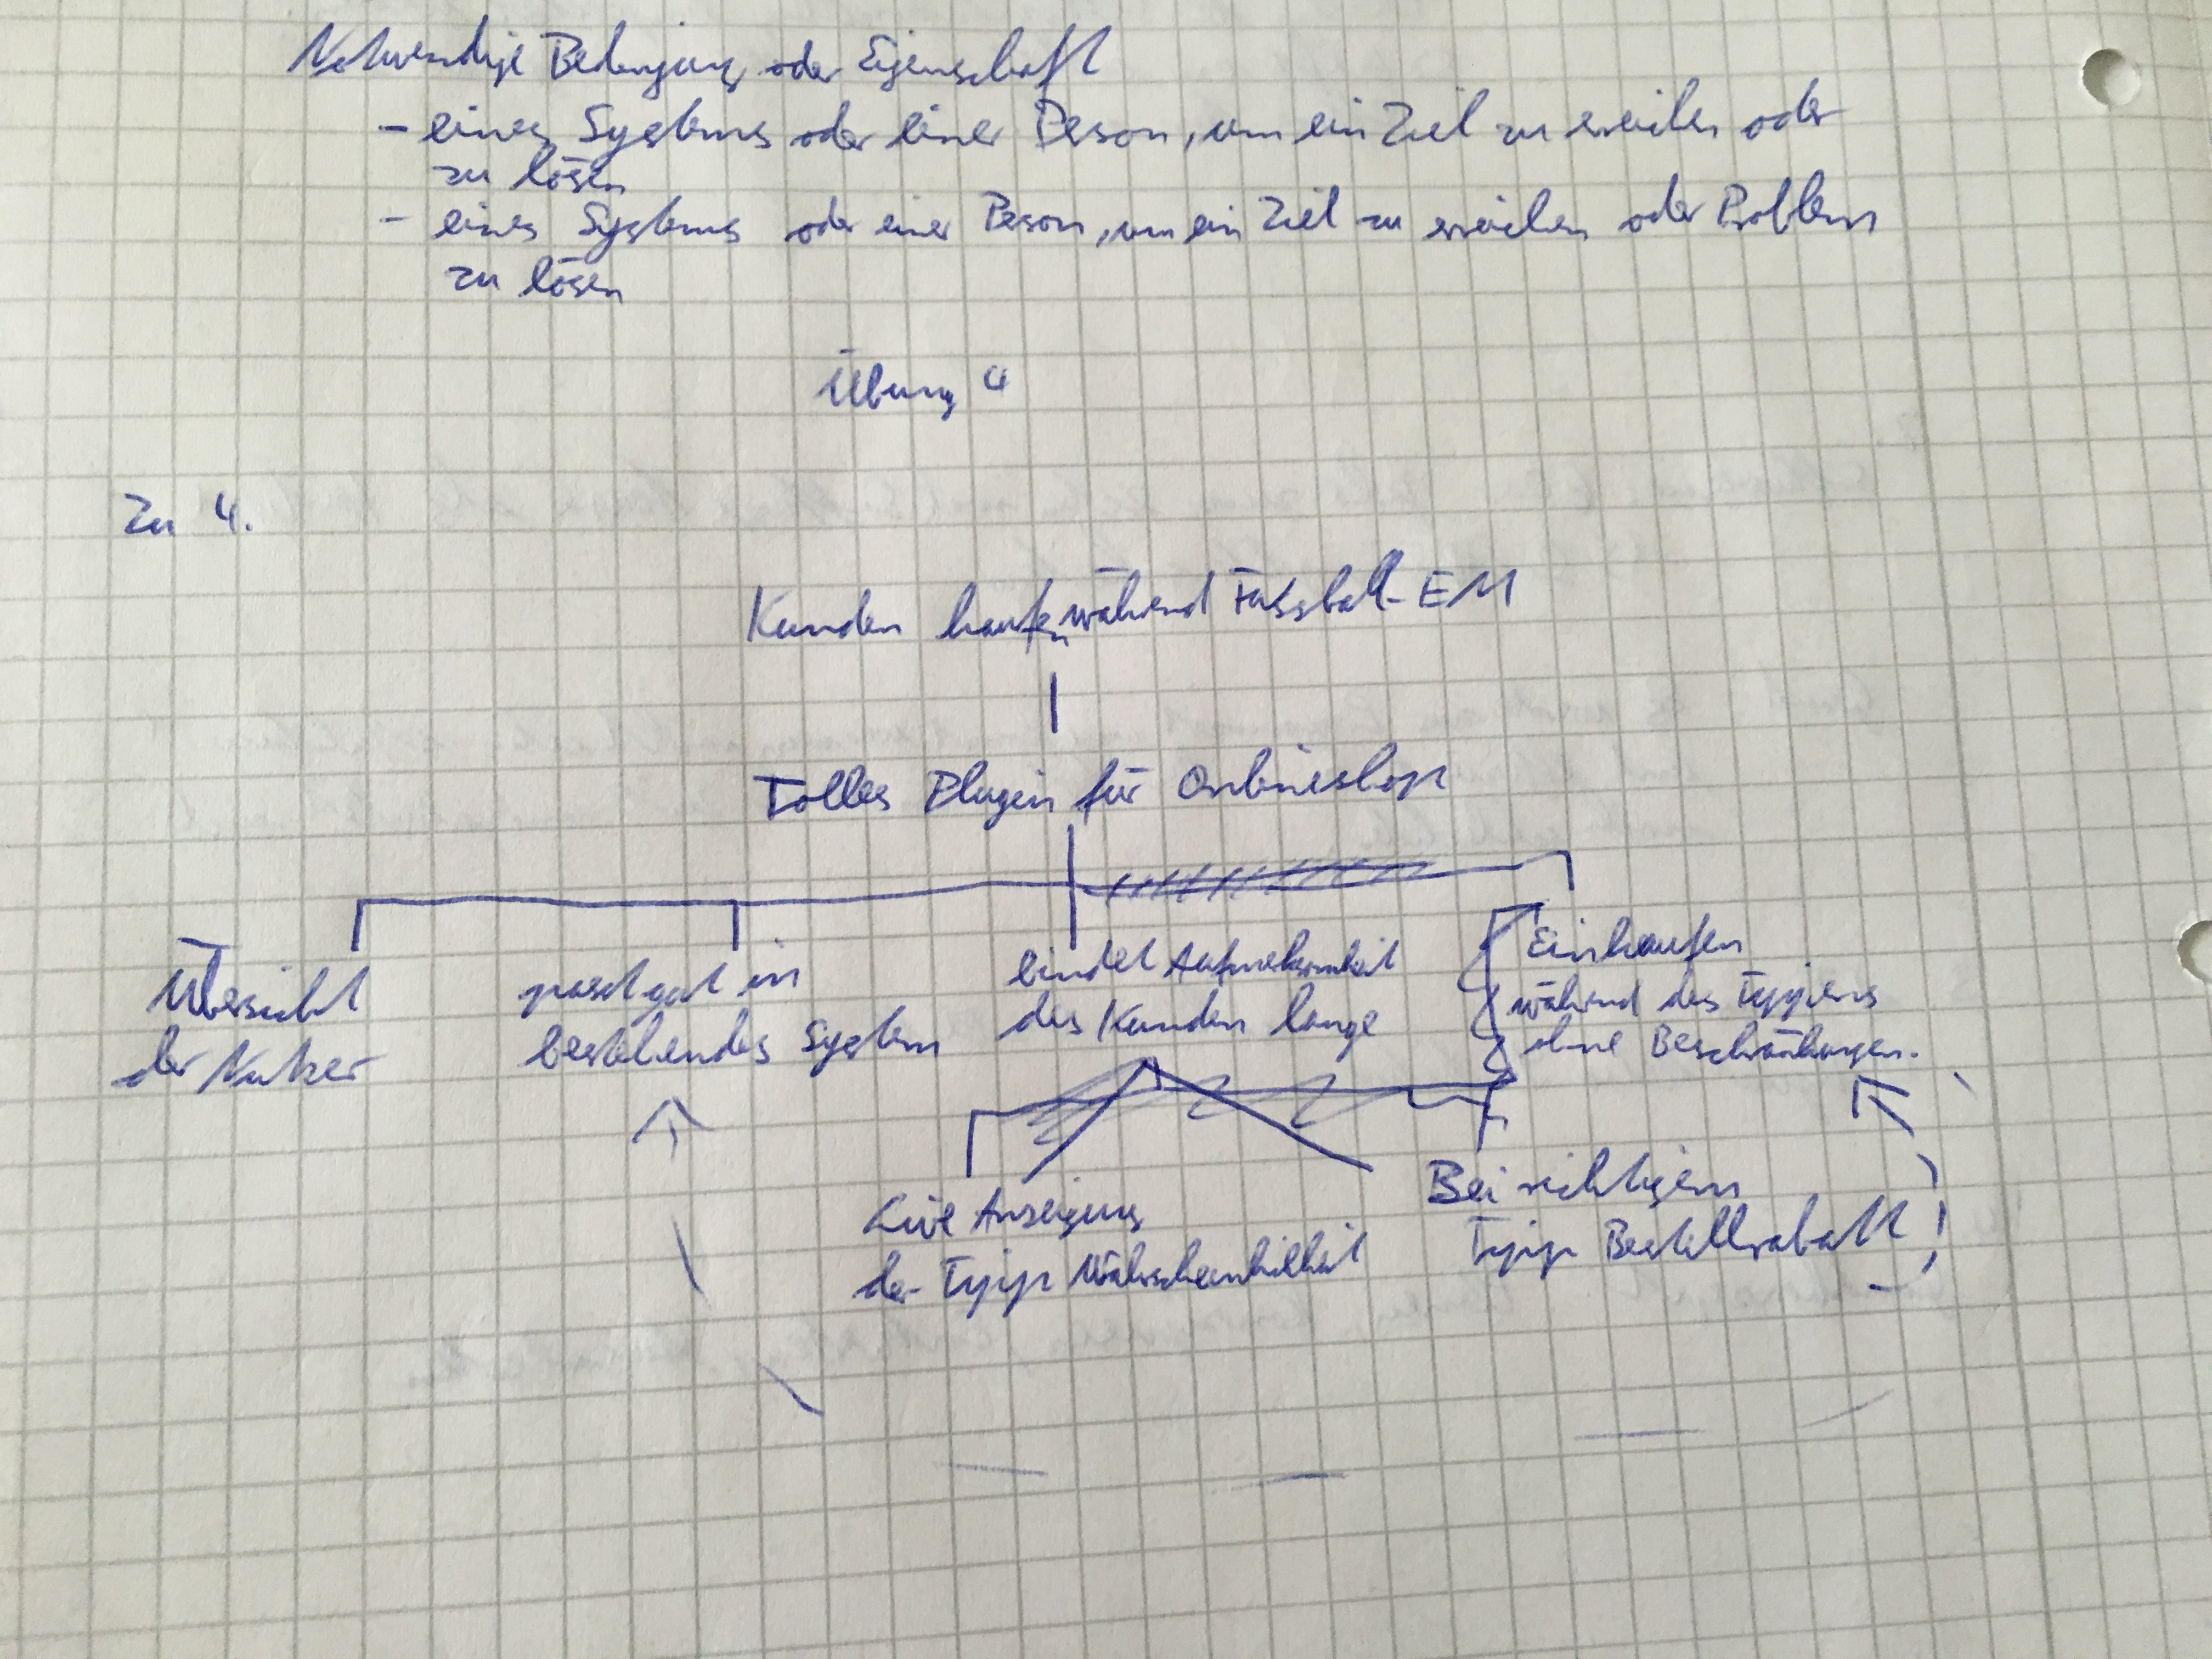 Notwendige Bedingung oder Eigenschaft
- eines Systems oder einer Person, um ein Ziel zu erreichen oder
zu lösen
- eines Systems oder einer Person, um ein Ziel zu erreichen oder Problem
zu lösen
Übung 4
Zu 4.
Kunden kaufen während Fussball-EM
Tolles Plugin für Onlineshop
Übersicht
der Nutzer
passt gut in
bestehendes System
bindet Aufmerksamkeit
des Kunden lange
Einkaufen
während des Tippens
ohne Beschränkungen.
Live Anzeigung
der Tipp Wahrscheinlichkeit
Bei richtigem
Tipp Bestellrabatt